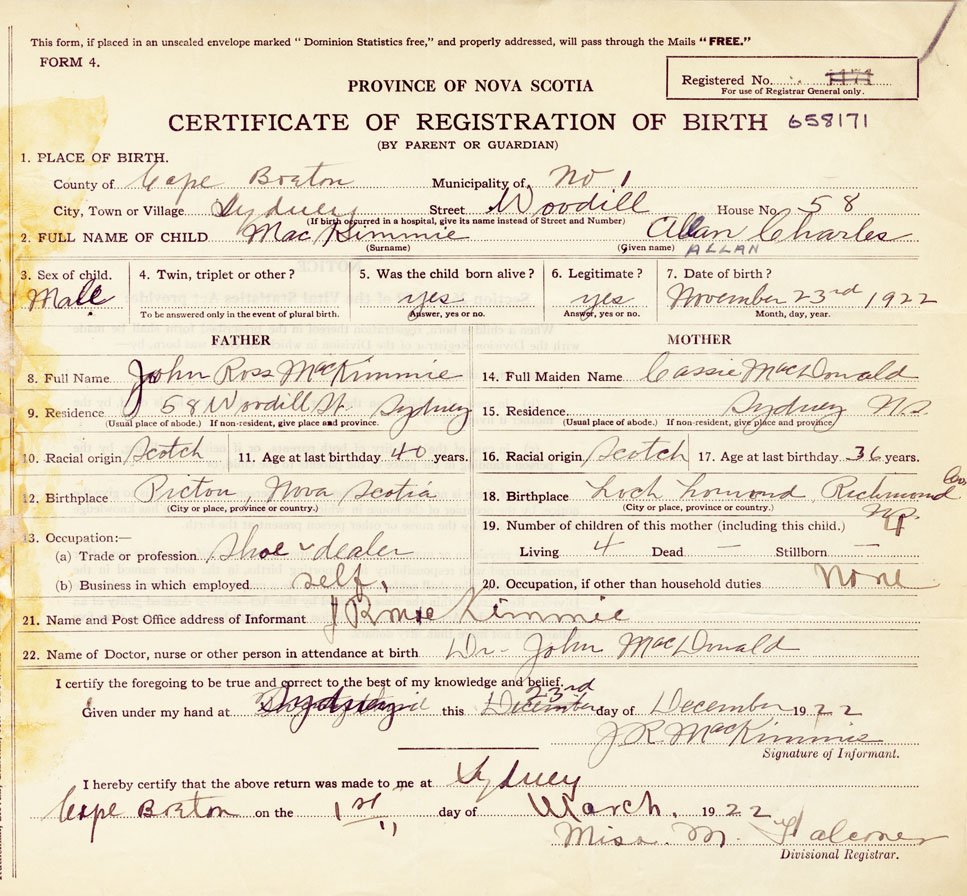 This form, if placed in an unsealed envelope marked " Dominion Statistics free," and properly addressed, will pass through the Mails "FREE."
FORM 4.
PROVINCE OF NOVA SCOTIA
Registered No.
For use of Registrar General only.
CERTIFICATE OF REGISTRATION OF BIRTH 658171
(BY PARENT OR GUARDIAN)
1. PLACE OF BIRTH.
County of Cape Breton Municipality of No 1
City, Town or Village Sydney Street Woodill House No 58
(If birth occurred in a hospital, give its name instead of Street and Number)
2. FULL NAME OF CHILD MacKimmie Allan Charles
(Surname) (Given name) ALLAN
3. Sex of child. 4. Twin, triplet or other? 5. Was the child born alive? 6. Legitimate? 7. Date of birth?
Male yes yes November 23rd 1922
To be answered only in the event of plural birth. Answer, yes or no. Answer, yes or no. Month, day, year.
FATHER MOTHER
8. Full Name John Ross MacKimmie 14. Full Maiden Name Cassie MacDonald
9. Residence 58 Woodill St. Sydney 15. Residence Sydney N.S.
(Usual place of abode.) If non-resident, give place and province. (Usual place of abode.) If non-resident, give place and province
10. Racial origin Scotch 11. Age at last birthday 40 years. 16. Racial origin Scotch 17. Age at last birthday 36 years.
12. Birthplace Pictou, Nova Scotia 18. Birthplace Loch Lomond Richmond Co.
(City or place, province or country.) (City or place, province or country.) N.S.
19. Number of children of this mother (including this child.) 4
13. Occupation:—
(a) Trade or profession Shoe-dealer Living 4 Dead — Stillborn —
(b) Business in which employed self, 20. Occupation, if other than household duties None
21. Name and Post Office address of Informant J R MacKimmie
22. Name of Doctor, nurse or other person in attendance at birth Dr- John MacDonald
I certify the foregoing to be true and correct to the best of my knowledge and belief.
Given under my hand at Sydney this 23rd December day of December 1922
J. R. MacKimmie
Signature of Informant.
I hereby certify that the above return was made to me at Sydney
Cape Breton on the 1st day of March, 1922
Miss. M. Falconer
Divisional Registrar.